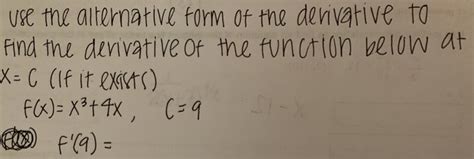 use the alternative form of the derivative to
find the derivative of the function below at
x = c (if it exists)
f(x) = x³+4x , c=9
f'(9) =